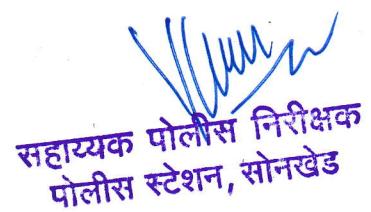 सहाय्यक पोलीस निरीक्षक
पोलीस स्टेशन, सोनखेड